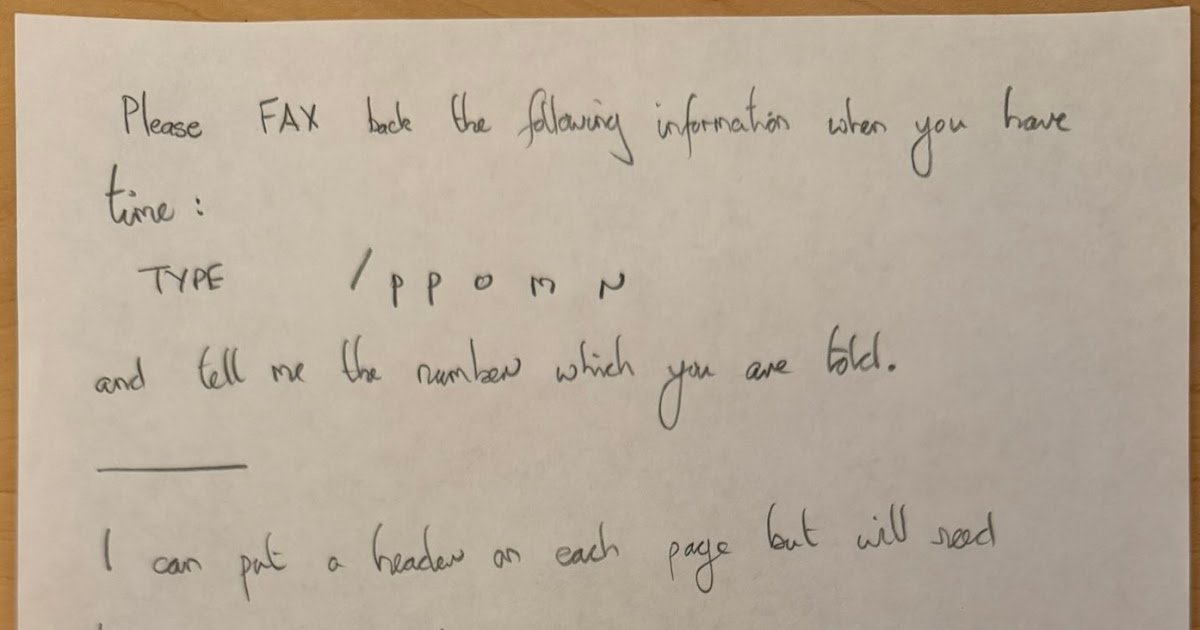 Please FAX back the following information when you have
time :
TYPE / P P O M N
and tell me the number which you are told.
I can put a header on each page but will need